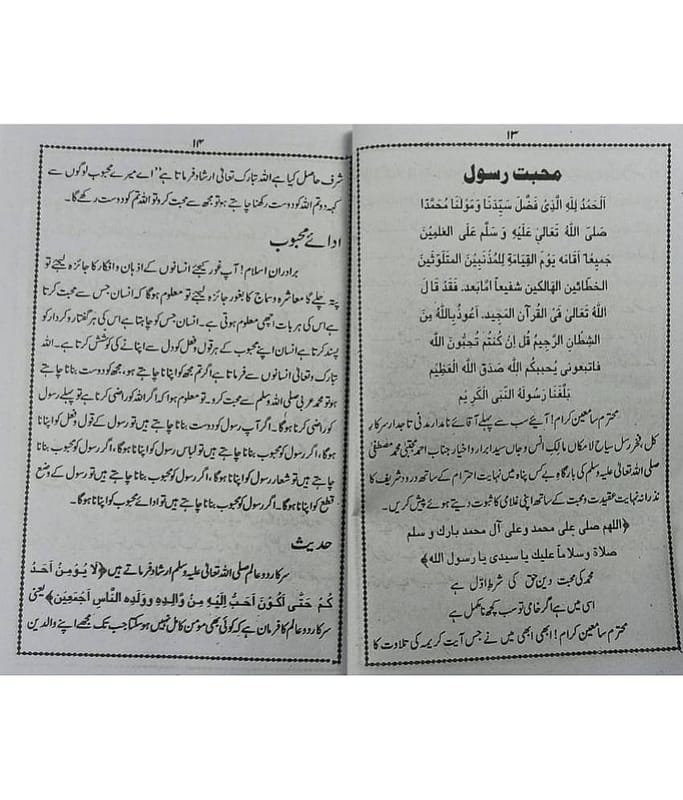 ۱۳
محبت رسول
اَلْحَمْدُ لِلّٰهِ الَّذِیْ فَضَّلَ سَیِّدَنَا وَمَوْلٰنَا مُحَمَّدًا
صَلَّی اللّٰهُ تَعَالیٰ عَلَیْهِ وَ سَلَّمَ عَلَی الْعٰلَمِیْنَ
جَمِیْعًا اَقَامَهٗ یَوْمَ الْقِیَامَةِ لِلْمُذْنِبِیْنَ الْمُتَلَوِّثِیْنَ
الْخَطَّائِیْنَ الْهَالِکِیْنَ شَفِیْعاً اَمَّابَعد. فَقَدْ قَا لَ
اللّٰهُ تَعَالیٰ فِی الْقُرآنِ الْمَجِیدِ. اَعُوذُ بِاللّٰهِ مِنَ
الشَّیْطَانِ الرَّجِیْمُ قُلْ اِنْ کُنْتُمْ تُحِبُّوْنَ اللّٰه
فَاتَّبِعُونِی یُحْبِبْکُم اللّٰه صَدَقَ اللّٰه الْعَظِیْم
بَلَّغَنَا رَسُولُهٗ النَّبِی الْکَرِیْم
محترم سامعین کرام! آیئے سب سے پہلے آقائے نامدار مدنی تاجدار سرکار
کل، فخر رسل سیاح لا مکاں مالک انس و جاں سید ابرار و اخیار جناب احمد مجتبیٰ محمد مصطفیٰ
صلی اللہ تعالیٰ علیہ وسلم کی بارگاہ بے کس پناہ میں نہایت احترام کے ساتھ درود شریف کا
نذرانہ نہایت عقیدت و محبت کے ساتھ اپنی غلامی کا ثبوت دیتے ہوئے پیش کریں۔
﴿اللهم صلی علی محمد وعلی آل محمد بارك و سلم
صلاة وسلاماً علیك یا سیدی یا رسول الله﴾
محمد کی محبت دین حق کی شرط اول ہے
اسی میں ہے اگر خامی تو سب کچھ نامکمل ہے
محترم سامعین کرام! ابھی ابھی میں نے جس آیت کریمہ کی تلاوت کا
۱۴
شرف حاصل کیا ہے اللہ تبارک تعالیٰ ارشاد فرماتا ہے "اے میرے محبوب لوگوں سے
کہہ دو تم اللہ کو دوست رکھنا چاہتے ہو تو مجھ سے محبت کرو تو اللہ تم کو دوست رکھے گا۔
ادائے محبوب
برادران اسلام! آپ غور کیجئے انسانوں کے اذہان و افکار کا جائزہ لیجئے تو
پتہ چلے گا معاشرہ و سماج کا بغور جائزہ لیجئے تو معلوم ہوگا کہ انسان جس سے محبت کرتا
ہے اس کی ہر بات اچھی معلوم ہوتی ہے۔ انسان جس کو چاہتا ہے اس کی ہر گفتار و کردار کو
پسند کرتا ہے انسان اپنے محبوب کے ہر قول و فعل کو دل سے اپنانے کی کوشش کرتا ہے۔ اللہ
تبارک و تعالیٰ انسانوں سے فرماتا ہے اگر تم مجھ کو اپنانا چاہتے ہو، مجھ کو دوست بنانا چاہتے
ہو تو محمد عربی صلی اللہ وسلم سے محبت کرو۔ تو معلوم ہوا کہ اگر اللہ کو راضی کرنا ہے تو پہلے رسول
کو راضی کرنا ہوگا۔ اگر آپ رسول کو دوست بنانا چاہتے ہیں تو رسول کے قول و فعل کو اپنانا
ہوگا، اگر رسول کو محبوب بنانا چاہتے ہیں تو لباس رسول کو اپنانا ہوگا، اگر رسول کو محبوب بنانا
چاہتے ہیں تو شعار رسول کو اپنانا ہوگا، اگر رسول کو محبوب بنانا چاہتے ہیں تو رسول کے وضع
قطع کو اپنانا ہوگا۔ اگر رسول کو محبوب بنانا چاہتے ہیں تو ادائے محبوب کو اپنانا ہوگا۔
حدیث
سرکار دو عالم صلی اللہ تعالیٰ علیہ وسلم ارشاد فرماتے ہیں ﴿لَا یُؤمِنُ اَحَدُ
کُمْ حَتّٰی اَکُوْنَ اَحَبَّ اِلَیْهِ مِنْ وَّالِدِهٖ وَوَلَدِهٖ النَّاسِ اَجْمَعِیْنَ﴾ یعنی
سرکار دو عالم کا فرمان ہے کہ کوئی بھی مؤمن کامل نہیں ہو سکتا جب تک مجھے اپنے والدین